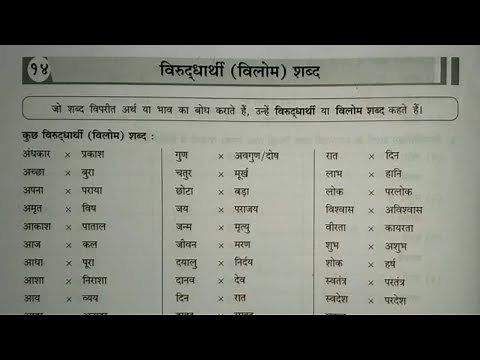 १४
विरुद्धार्थी (विलोम) शब्द
जो शब्द विपरीत अर्थ या भाव का बोध कराते हैं, उन्हें विरुद्धार्थी या विलोम शब्द कहते हैं।
कुछ विरुद्धार्थी (विलोम) शब्द :
अंधकार × प्रकाश
अच्छा × बुरा
अपना × पराया
अमृत × विष
आकाश × पाताल
आज × कल
आधा × पूरा
आशा × निराशा
आय × व्यय
गुण × अवगुण/दोष
चतुर × मूर्ख
छोटा × बड़ा
जय × पराजय
जन्म × मृत्यु
जीवन × मरण
दयालु × निर्दय
दानव × देव
दिन × रात
रात × दिन
लाभ × हानि
लोक × परलोक
विश्वास × अविश्वास
वीरता × कायरता
शुभ × अशुभ
शोक × हर्ष
स्वतंत्र × परतंत्र
स्वदेश × परदेश